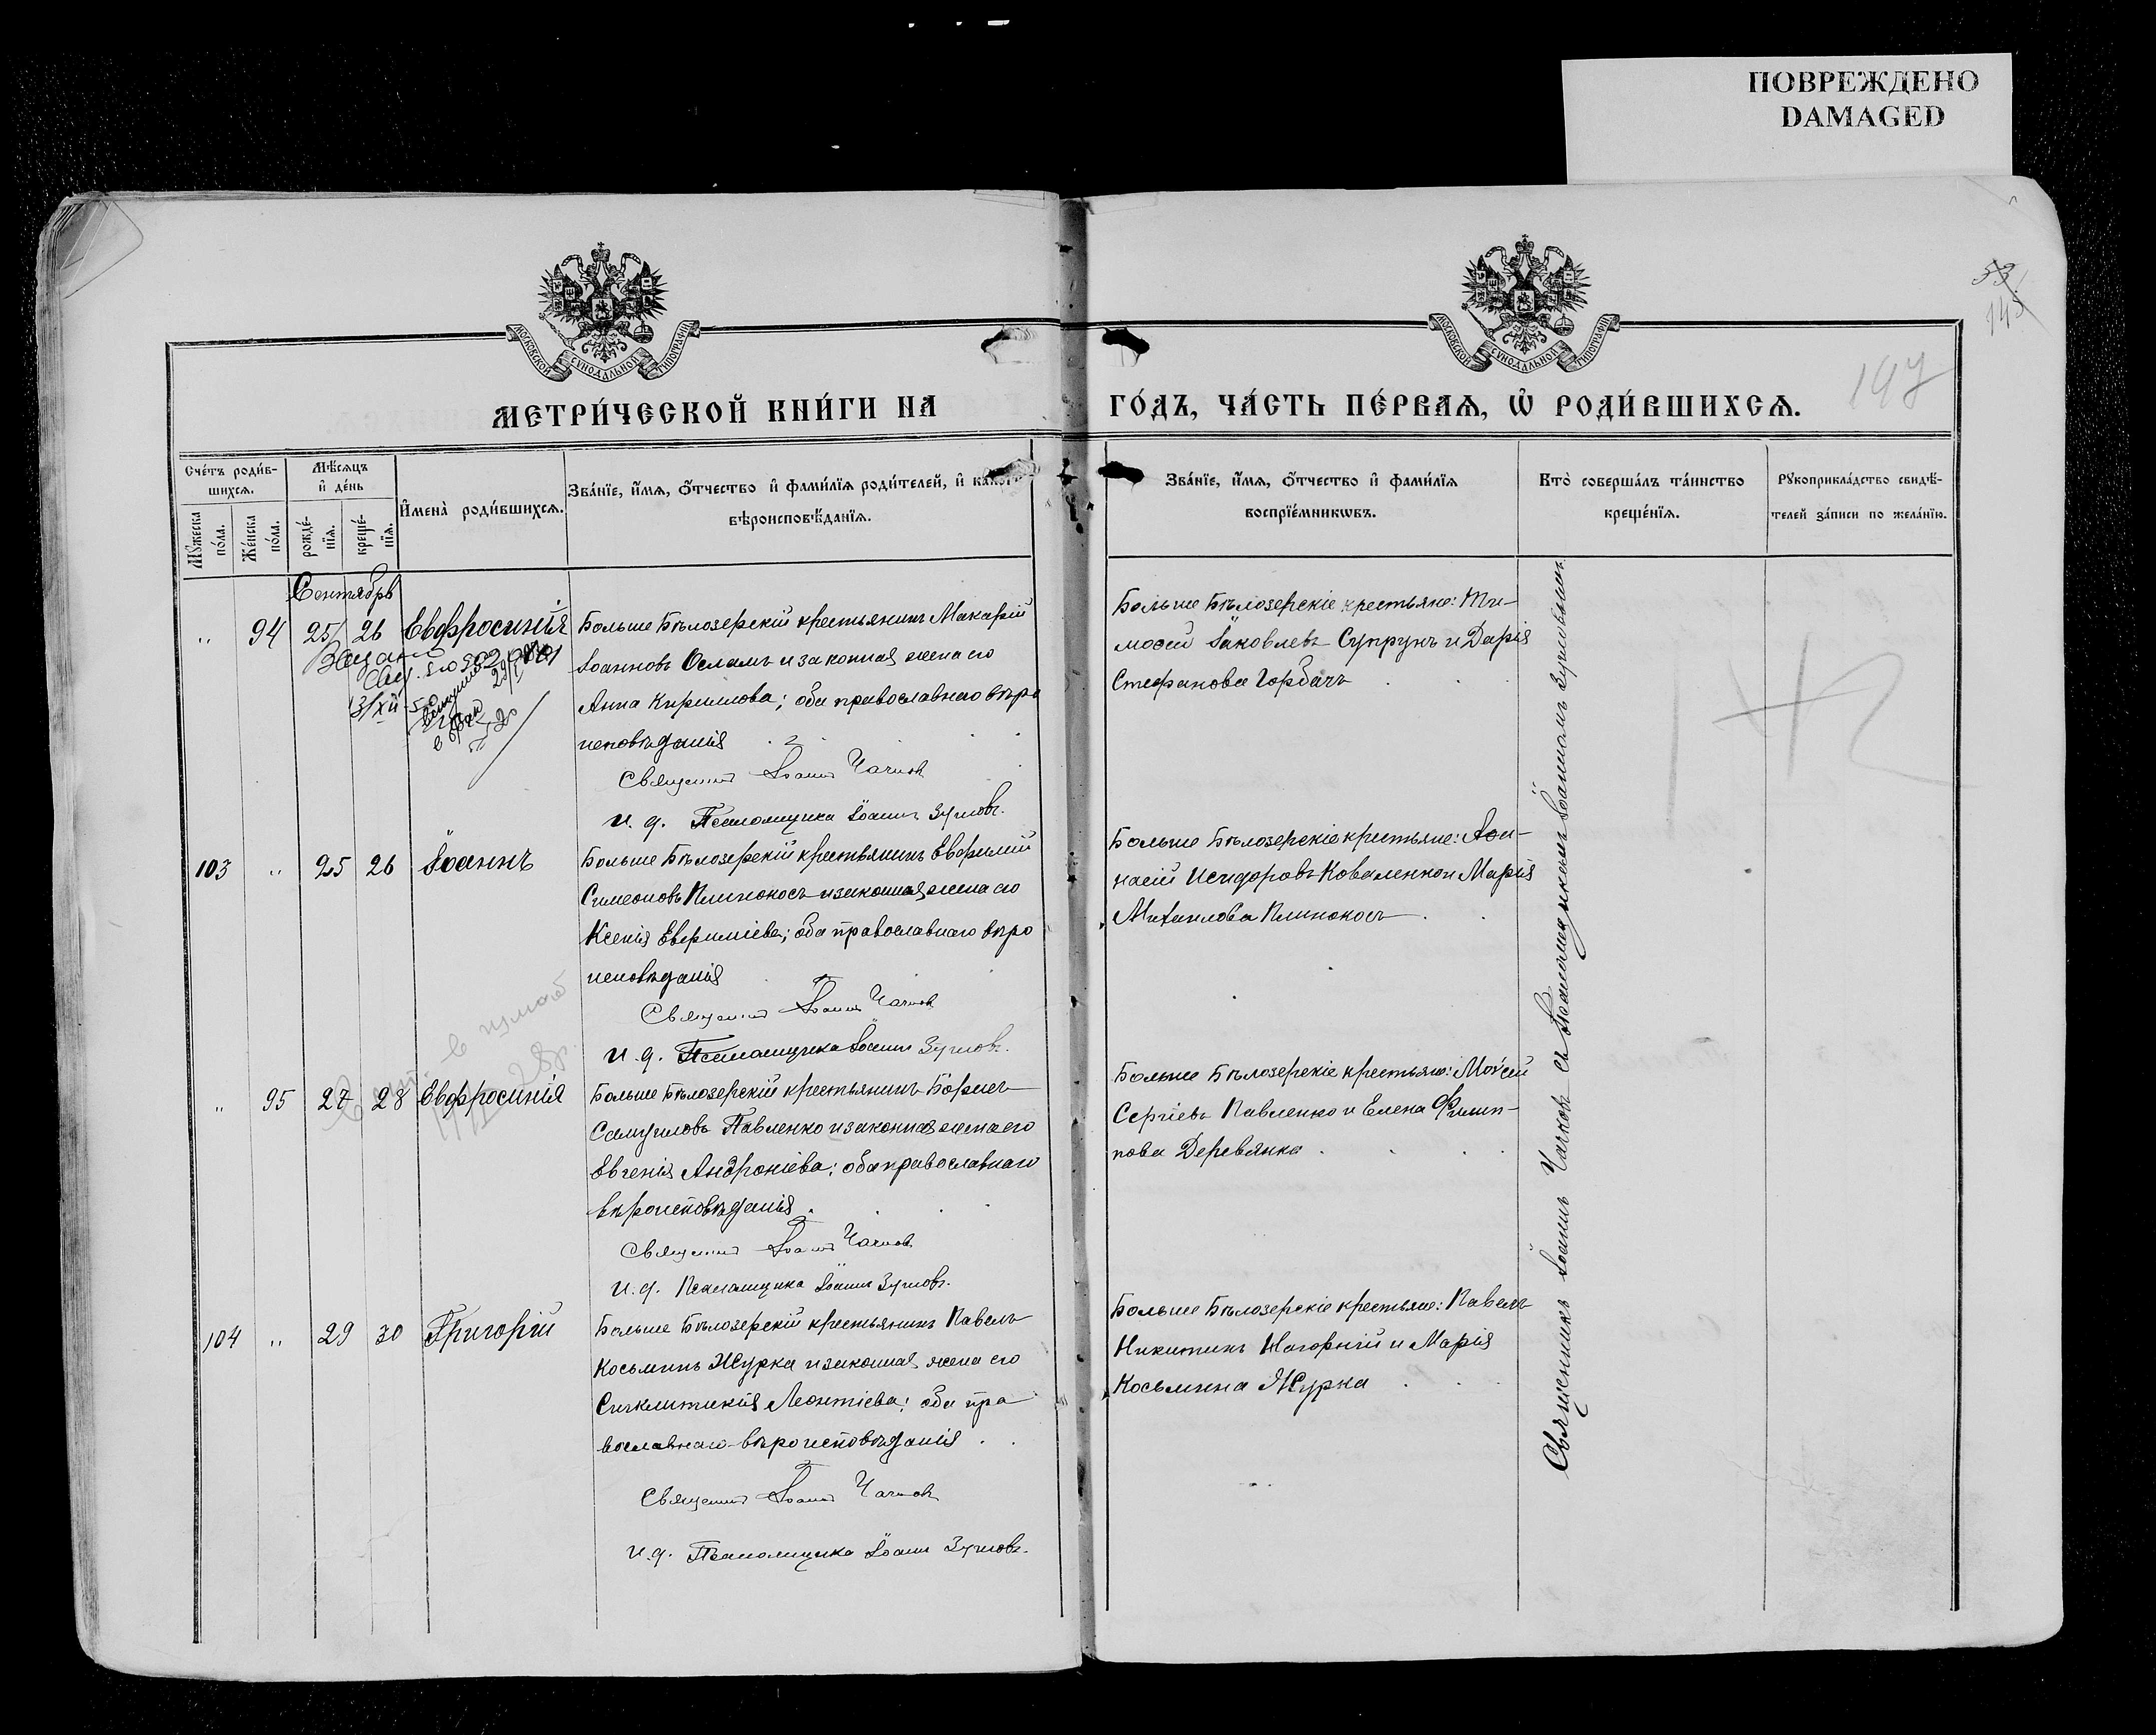 ПОВРЕЖДЕНО
DAMAGED
МОСКОВСКОЙ СѴНОДАЛЬНОЙ ТИПОГРАФІИ
МОСКОВСКОЙ СѴНОДАЛЬНОЙ ТИПОГРАФІИ
53
145
197
МЕТРИ́ЧЕСКОЙ КНИ́ГИ НА
ГО́ДЪ, ЧА́СТЬ ПЕ́РВАЯ, Ѡ҆ РОДИ́ВШИХСЯ.
Сче́тъ роди́в-
шихся.
Мꙋ́жеска по́ла.
Же́нска по́ла.
Мѣ́сяцъ
и҆ де́нь
рожде́-
нїя.
креще́-
нїя.
И҆мена̀ роди́вшихся.
Зва́нїе, и҆́мя, ѻ҆́тчество и҆ фами́лїя роди́телей, и҆ како́гѡ
вѣроисповѣ́данїя.
Зва́нїе, и҆́мя, ѻ҆́тчество и҆ фами́лїя
воспрїе́мникѡвъ.
Кто̀ соверша́лъ та́инство
креще́нїя.
Рꙋкоприкла́дство свидѣ́-
телей за́писи по жела́нїю.
Сентябрь
" 94 25 26 Евфросинія
Больше Бѣлозерскій крестьянинъ Макарій
Іоанновъ Осламъ и законная жена его
Анна Кириллова; оба православнаго вѣро
исповѣданія
Священникъ Іоаннъ Чачковъ
И. д. Псаломщика Іоаннъ
Больше Бѣлозерскіе крестьяне: Ти-
моѳей Іаковлевъ Супрунъ и Дарія
Стефанова Горбачъ
103 " 25 26 Іоаннъ
Больше Бѣлозерскій крестьянинъ Евфимій
Симеоновъ Плинокосъ и законная жена его
Ксенія Евфиміева; оба православнаго вѣро
исповѣданія
Священникъ Іоаннъ Чачковъ
И. д. Псаломщика Іоаннъ
Больше Бѣлозерскіе крестьяне: Аѳа-
насій Исидоровъ Коваленко и Марія
Михаилова Плинокосъ
" 95 27 28 Евфросинія
Больше Бѣлозерскій крестьянинъ Борисъ
Самуиловъ Павленко и законная жена его
Евгенія Андроніева; оба православнаго
вѣроисповѣданія.
Священникъ Іоаннъ Чачковъ
И. д. Псаломщика Іоаннъ
Больше Бѣлозерскіе крестьяне: Моѵсей
Сергіевъ Павленко и Елена Филип-
пова Деревянко
104 " 29 30 Григорій
Больше Бѣлозерскій крестьянинъ Павелъ
Косьминъ Журка и законная жена его
Синклитикія Леонтіева; оба пра
вославнаго вѣроисповѣданія
Священникъ Іоаннъ Чачковъ
И. д. Псаломщика Іоаннъ
Больше Бѣлозерскіе крестьяне: Павелъ
Никитинъ Нагорный и Марія
Косьмина Журка
Священникъ Іоаннъ Чачковъ съ Псаломщикомъ Іоанномъ